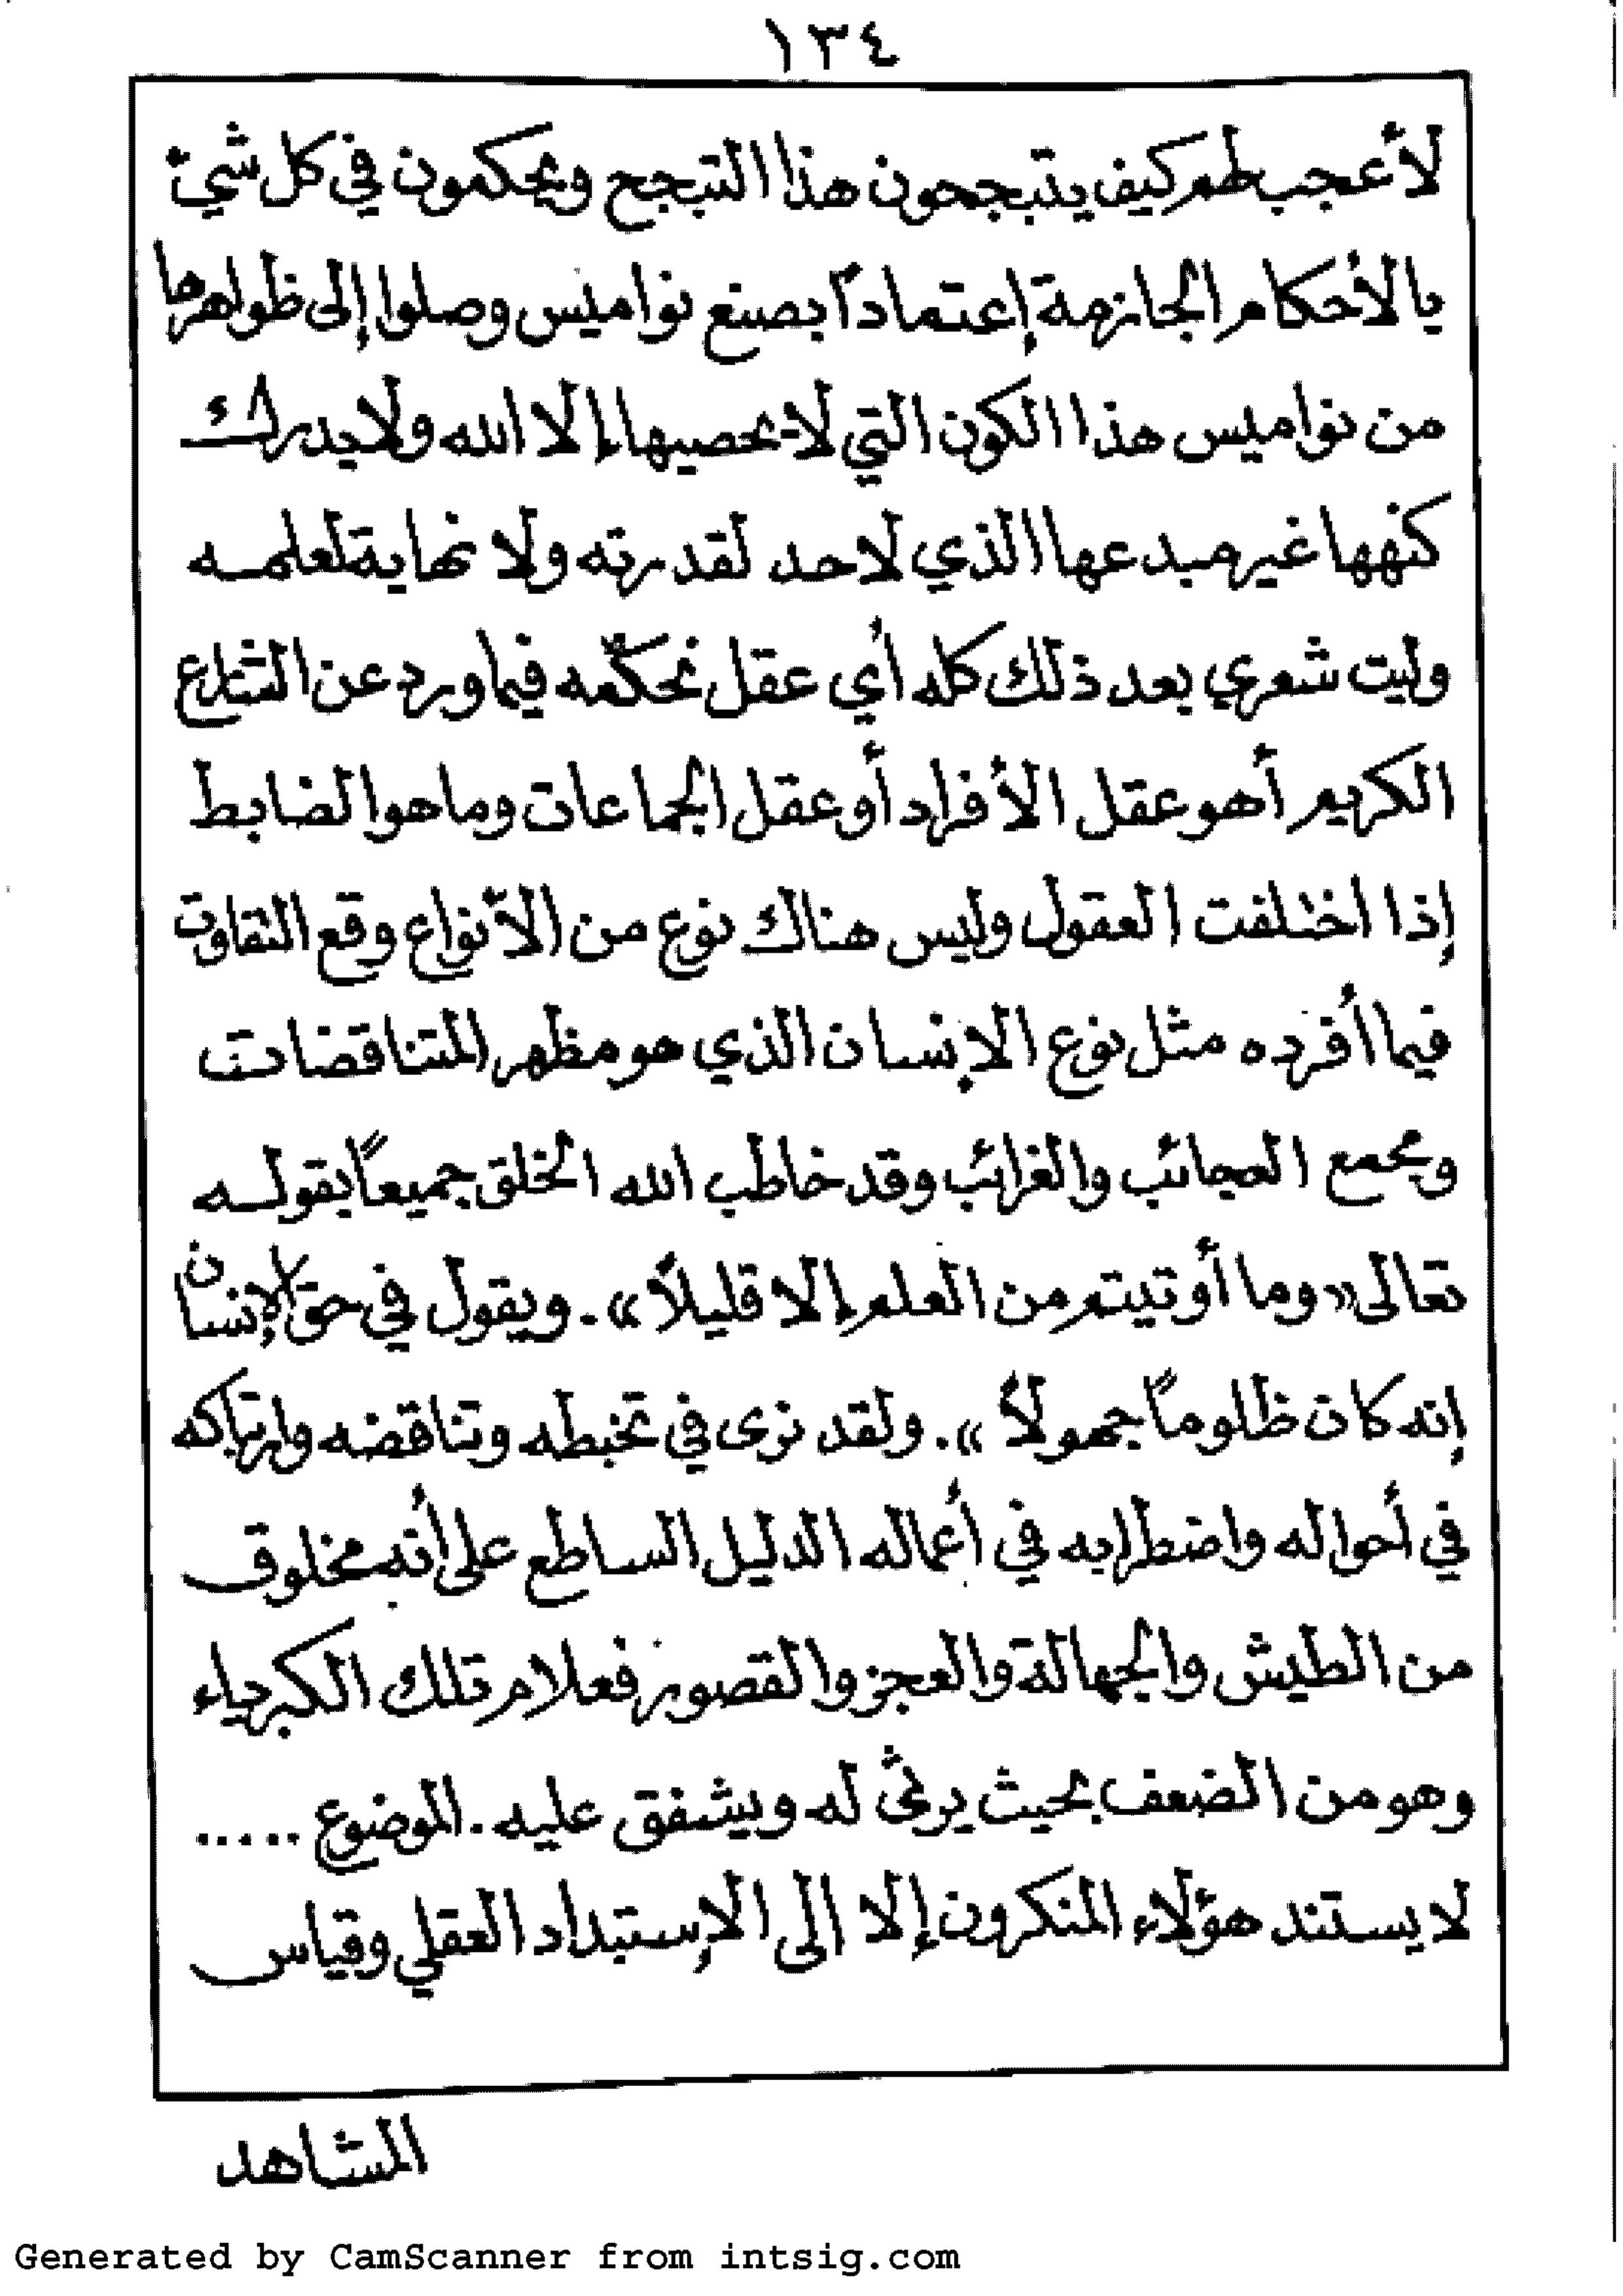 ١٣٤
لأعجب لهم كيف يتبجحون هذا التبجح ويحكمون في كل شيء
بالأحكام الجازمة إعتماداً بصنع نواميس وصلوا إلى ظواهرها
من نواميس هذا الكون التي لا يحصيها إلا الله ولا يدرك
كنهها غير مبدعها الذي لا حد لقدرته ولا نهاية لعلمه
وليت شعري بعد ذلك كله أي عقل نحكّمه فيما ورد عن الشارع
الكريم أهو عقل الأفراد أو عقل الجماعات وما هو الضابط
إذا اختلفت العقول وليس هناك نوع من الأنواع وقع التفاوت
فيما أفرده مثل نوع الإنسان الذي هو مظهر المتناقضات
ومجمع العجائب والغرائب وقد خاطب الله الخلق جميعاً بقوله
تعالى «وما أوتيتم من العلم إلا قليلاً». ويقول في حق الإنسان
إنه كان ظلوماً جهولاً». ولقد نرى في تخبطه وتناقضه وارتباكه
في أحواله واضطرابه في أعماله الدليل الساطع على أنه مخلوق
من الطيش والجهالة والعجز والقصور فعلام تلك الكبرياء
وهو من الضعف بحيث يرثى له ويشفق عليه. الموضوع .....
لا يستند هؤلاء المنكرون إلا إلى الإستبداد العقلي وقياس
المشاهد
Generated by CamScanner from intsig.com